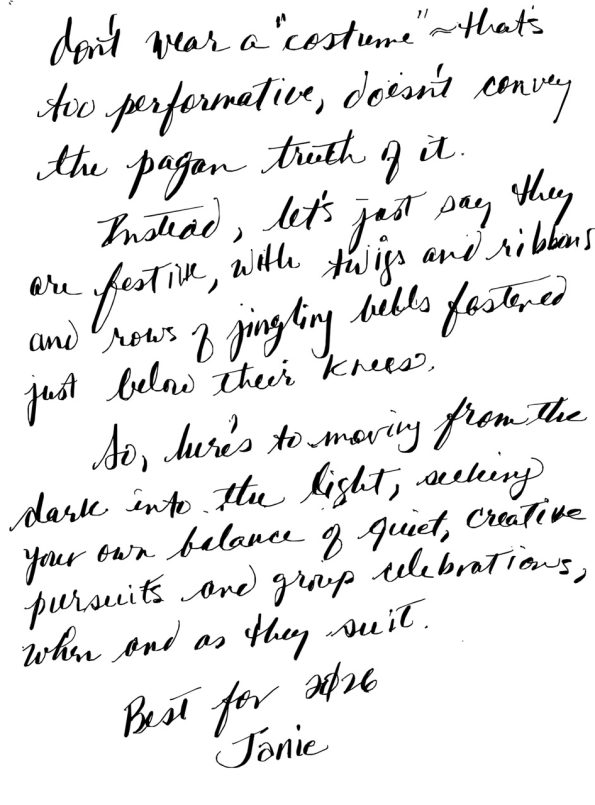 don't wear a "costume" ~ that's
too performative, doesn't convey
the pagan truth of it.
Instead, let's just say they
are festive, with twigs and ribbons
and rows of jingling bells fastened
just below their knees.
So, here's to moving from the
dark into the light, seeking
your own balance of quiet, creative
pursuits and group celebrations,
when and as they suit.
Best for 2026
Janie